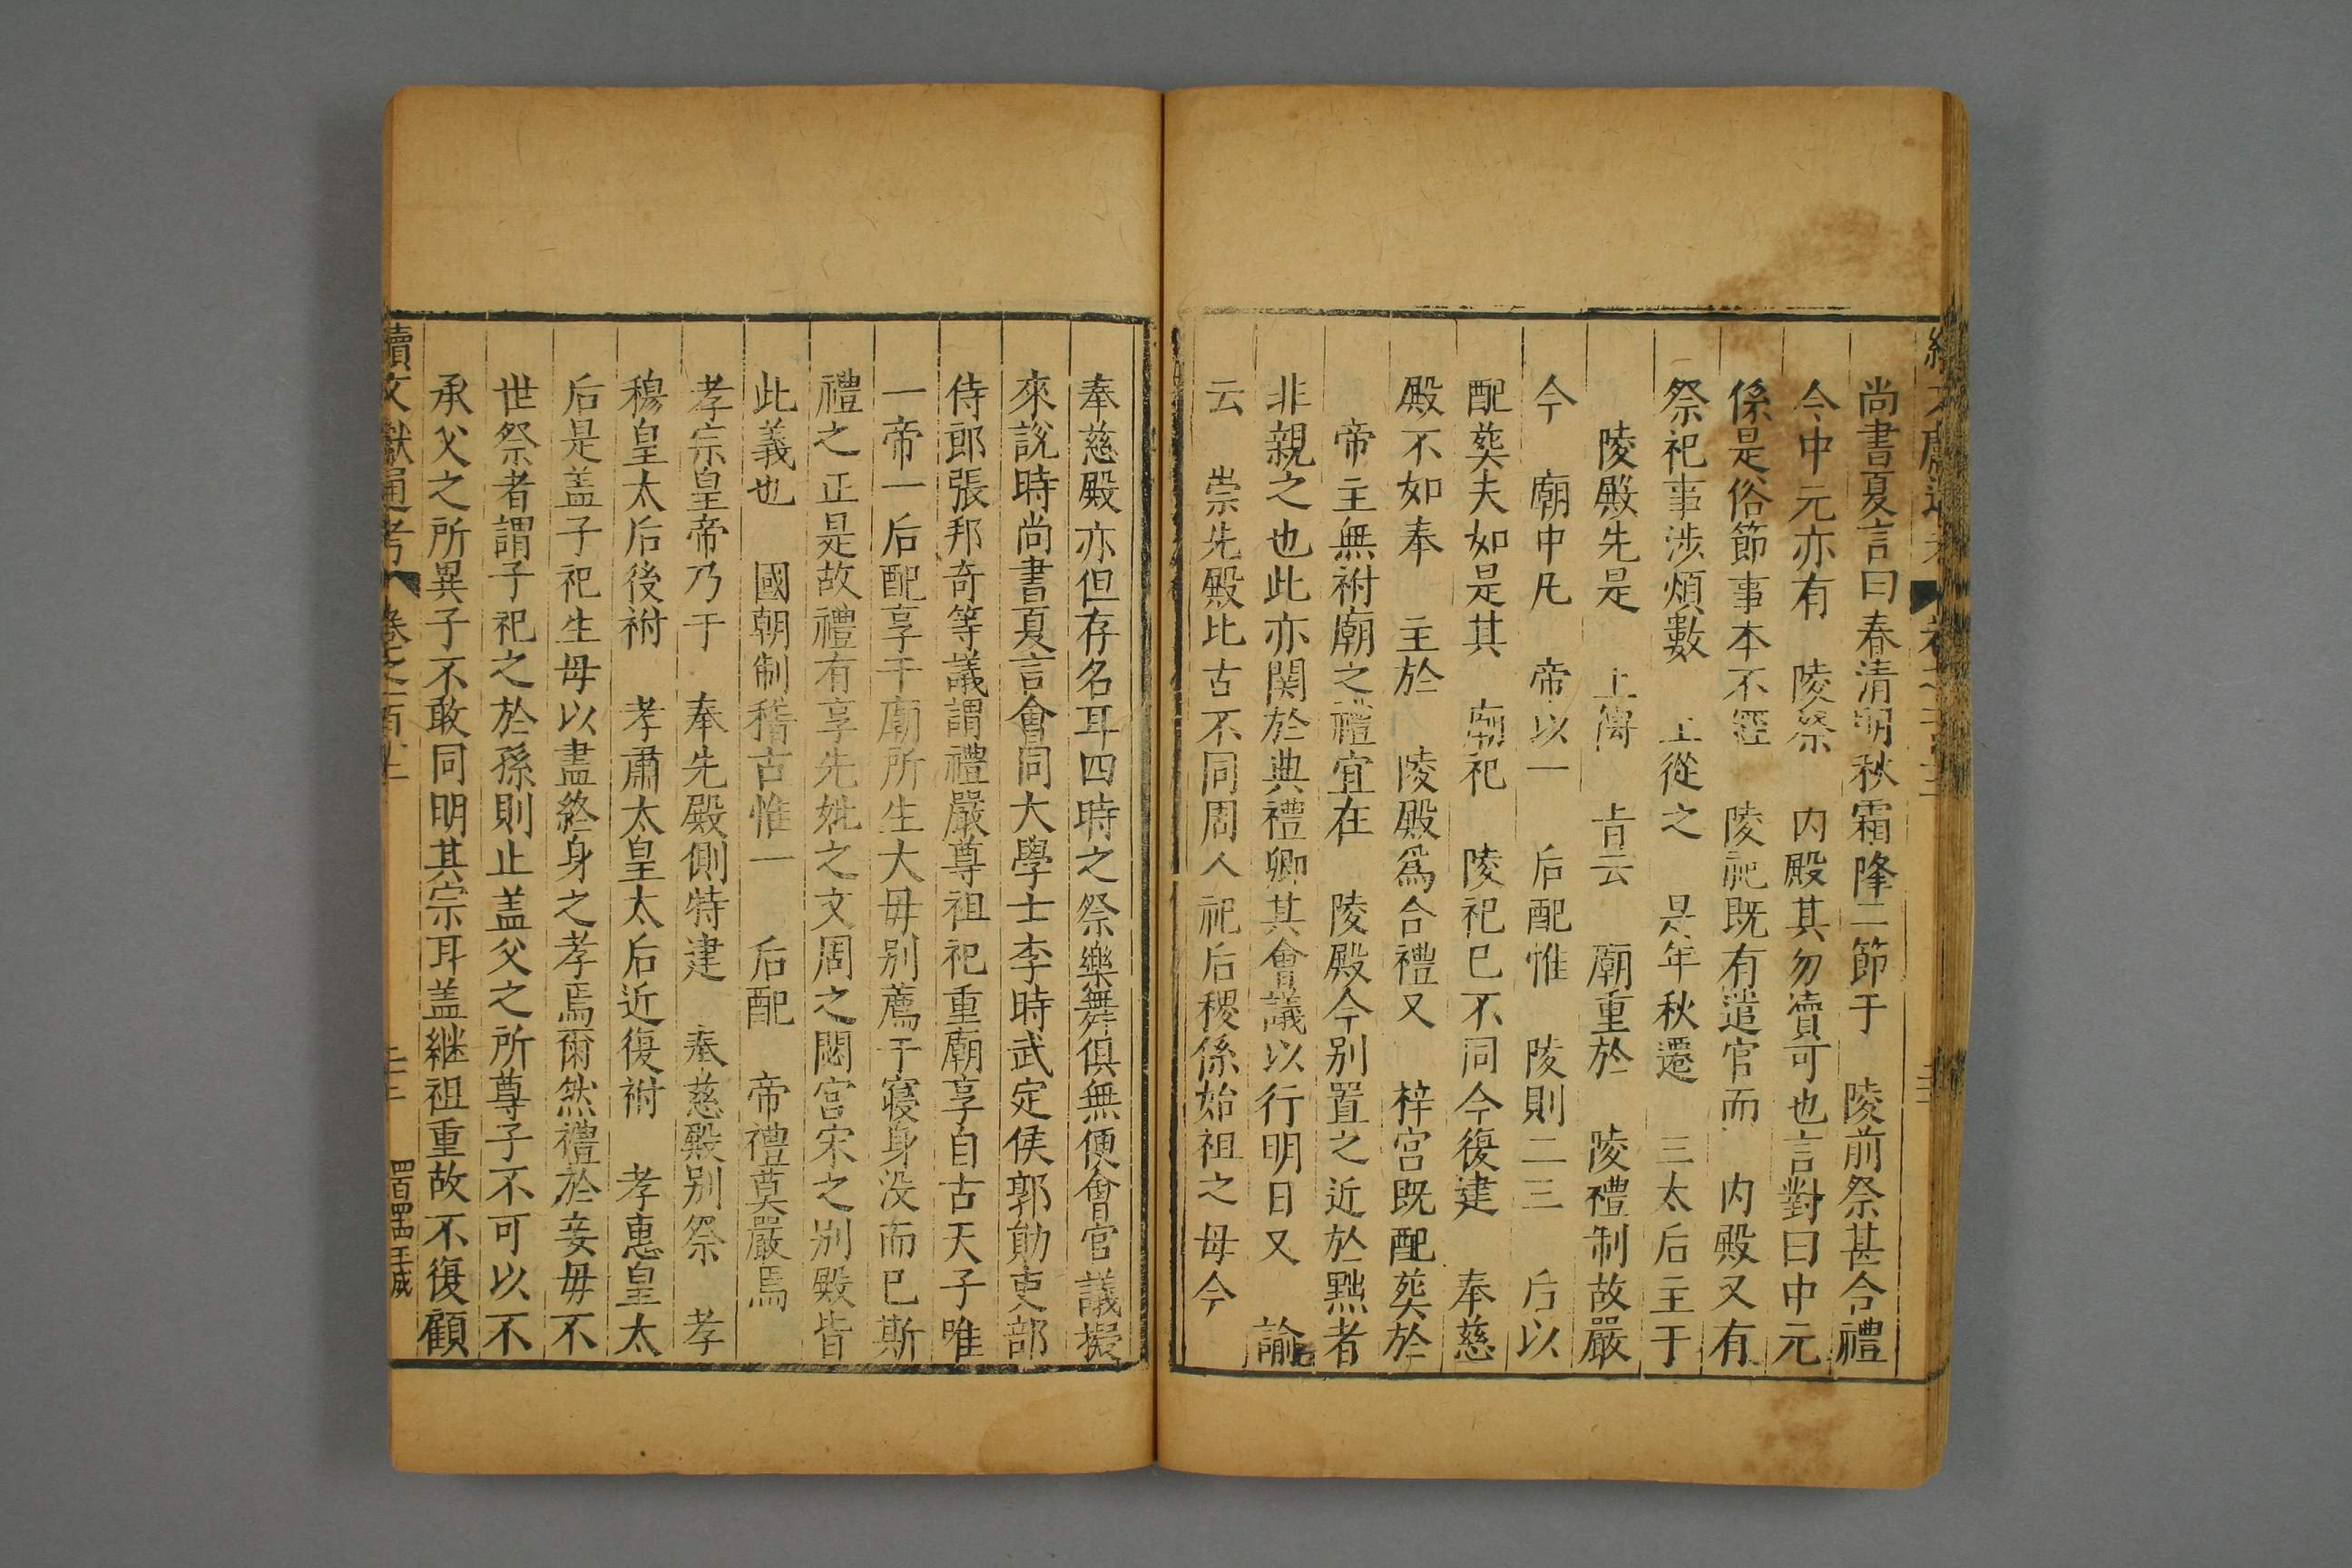 尚書夏言曰春清明秋霜降二節于 陵前祭甚合禮
今中元亦有 陵祭 内殿其勿瀆可也言對曰中元
係是俗節事本不經 陵祀既有遣官而 内殿又有
祭祀事涉煩數 上從之 是年秋遷 三太后主于
陵殿先是 上傳 旨云 廟重於 陵禮制故嚴
今 廟中凡 帝以一 后配惟 陵則二三 后以
配葬夫如是其 廟祀 陵祀巳不同今復建 奉慈
殿不如奉 主於 陵殿為合禮又 梓宮既配葬於
帝主無祔廟之禮宜在 陵殿今別置之近於黜者
非親之也此亦関於典禮卿其會議以行明日又 諭
云 崇先殿比古不同周人祀后稷係始祖之母今
奉慈殿亦但存名耳四時之祭樂舞俱無便會官議擬
來說時尚書夏言會同大學士李時武定侯郭勛吏部
侍郎張邦奇等議謂禮嚴尊祖祀重廟享自古天子唯
一帝一后配享于廟所生大毋别薦于寢身没而巳斯
禮之正是故禮有享先妣之文周之閟宮宋之别殿皆
此義也 國朝制稽古惟一 后配 帝禮莫嚴焉
孝宗皇帝乃于 奉先殿側特建 奉慈殿别祭 孝
穆皇太后後祔 孝肅太皇太后近復祔 孝惠皇太
后是盖子祀生母以盡終身之孝焉爾然禮於妾毋不
世祭者謂子祀之於孫則止盖父之所尊子不可以不
承父之所異子不敢同明其宗耳盖継祖重故不復顧
續文獻通考 卷之一百
四百四四王成